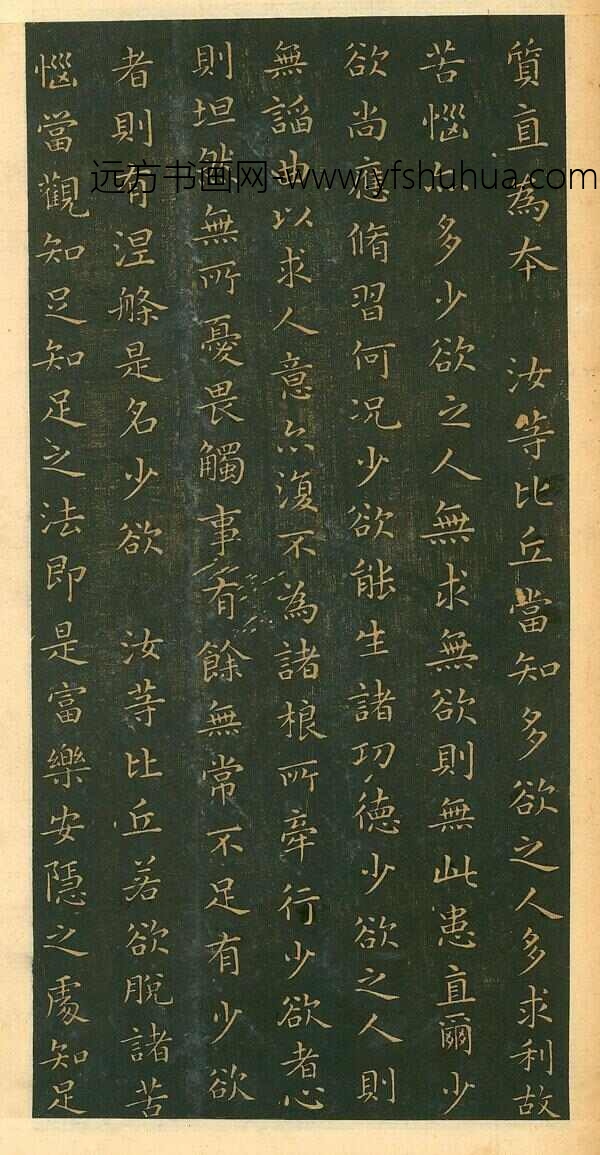 質直為本 汝等比丘當知多欲之人多求利故
苦惱亦多少欲之人無求無欲則無此患直爾少
欲尚應脩習何況少欲能生諸功德少欲之人則
無諂曲以求人意亦復不為諸根所牽行少欲者心
則坦然無所憂畏觸事有餘無常不足有少欲
者則有涅槃是名少欲 汝等比丘若欲脫諸苦
惱當觀知足知足之法即是富樂安隱之處知足
远方书画网-www.yfshuhua.com